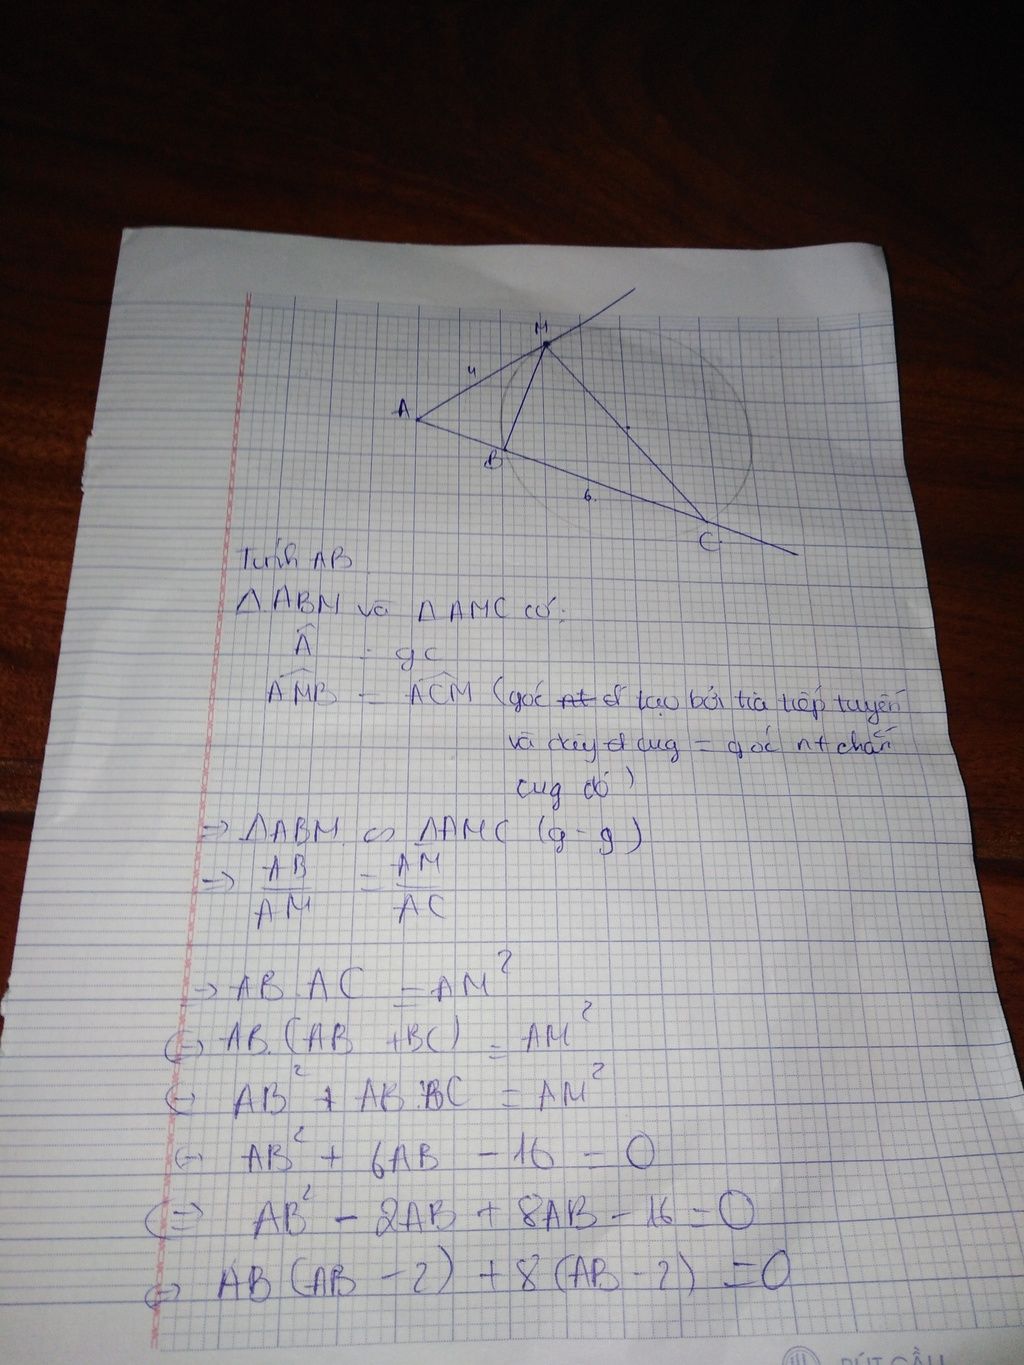 M
4
A
B
6.
C
Tính AB
Δ ABM và Δ AMC có:
Â : gc
AMB = ACM (góc nt đ tạo bởi tia tiếp tuyến
và dây cug = góc nt chắn
cug đó)
=> ΔABM ∽ ΔAMC (g-g)
=> AB/AM = AM/AC
-> AB.AC = AM²
<=> AB.(AB +BC) = AM²
<=> AB² + AB.BC = AM²
<=> AB² + 6AB - 16 = 0
<=> AB² - 2AB + 8AB - 16 = 0
<=> AB(AB - 2) + 8(AB - 2) = 0